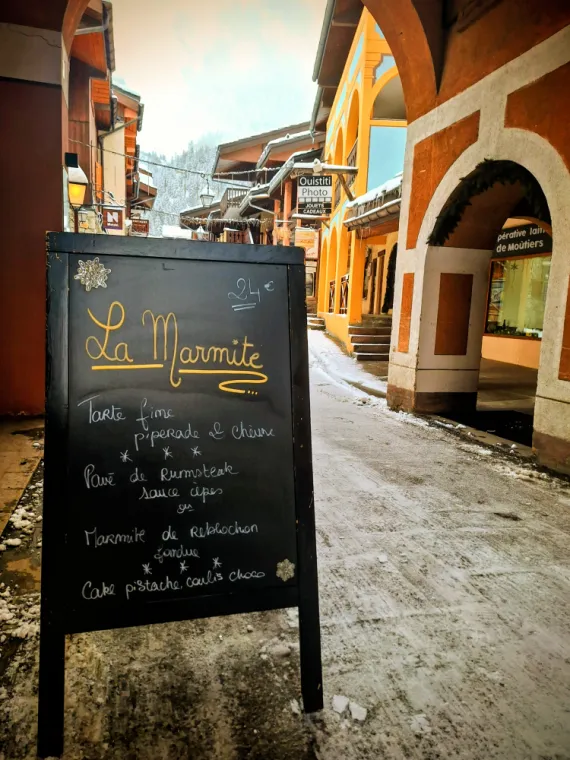 24 €
La Marmite
Tarte fine
piperade & chèvre
Pavé de Rumsteak
sauce cèpes
ou
Marmite de Reblochon
fondue
Cake pistache, coulis choco
Ouistiti
Photo
JOUETS
CADEAUX
N
pérative lait
de Moûtiers